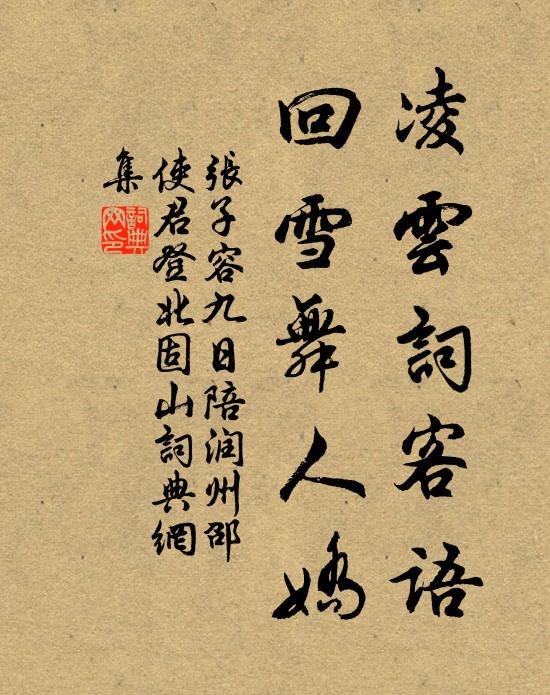 凌雲詞客語
回雪舞人嬌
張子容九日陪润州邵
使君登北固山詞典網
集
詞典
网印